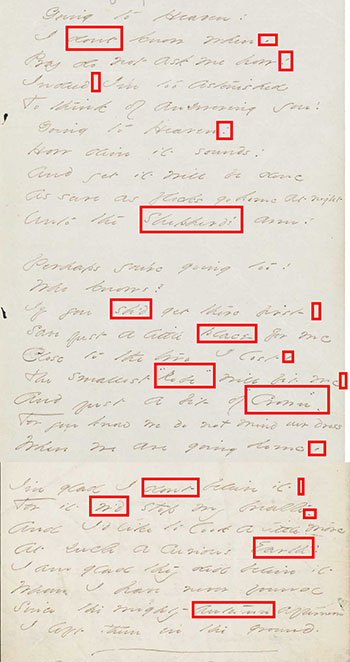 Going to Heaven!
I dont know when -
Pray do not ask me how!
Indeed I'm too astonished
To think of answering you!
Going to Heaven!
How dim it sounds!
And yet it will be done
As sure as flocks go home at night
Unto the Shepherd's arm!
Perhaps you're going too!
Who knows?
If you sh'd get there first
Save just a little place for me
Close to the two I lost -
The smallest "Robe" will fit me
And just a bit of "Crown"
For you know we do not mind our dress
When we are going home -
I'm glad I dont believe it
For it w'd stop my breath -
And I'd like to look a little more
At such a curious Earth!
I am glad they did believe it
Whom I have never found
Since the mighty Autumn afternoon
I left them in the ground.